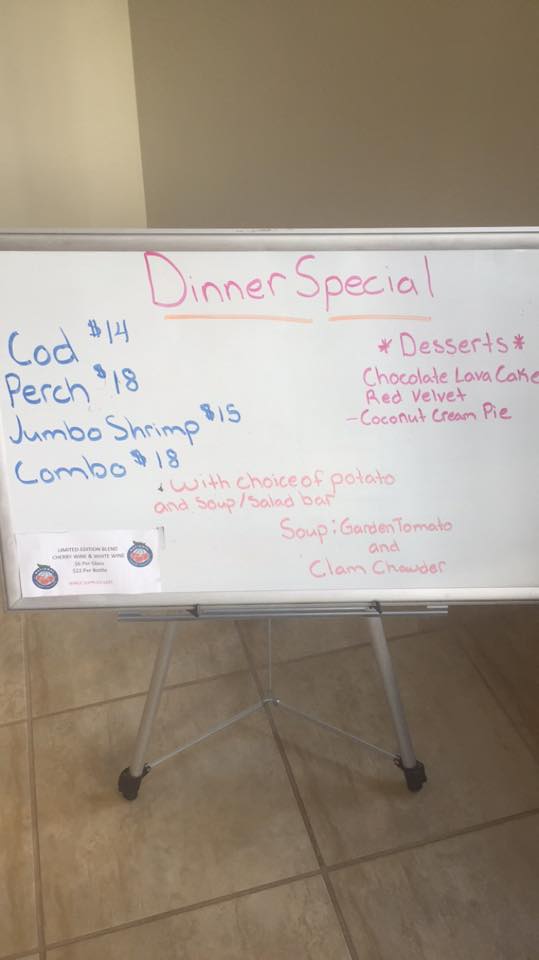 Dinner Special
Cod $14
Perch $18
Jumbo Shrimp $15
Combo $18
with choice of potato
and Soup/Salad bar
* Desserts *
Chocolate Lava Cake
Red Velvet
- Coconut Cream Pie
Soup: Garden Tomato
and
Clam Chowder
LIMITED EDITION BLEND
CHERRY WINE & WHITE WINE
$6 Per Glass
$22 Per Bottle